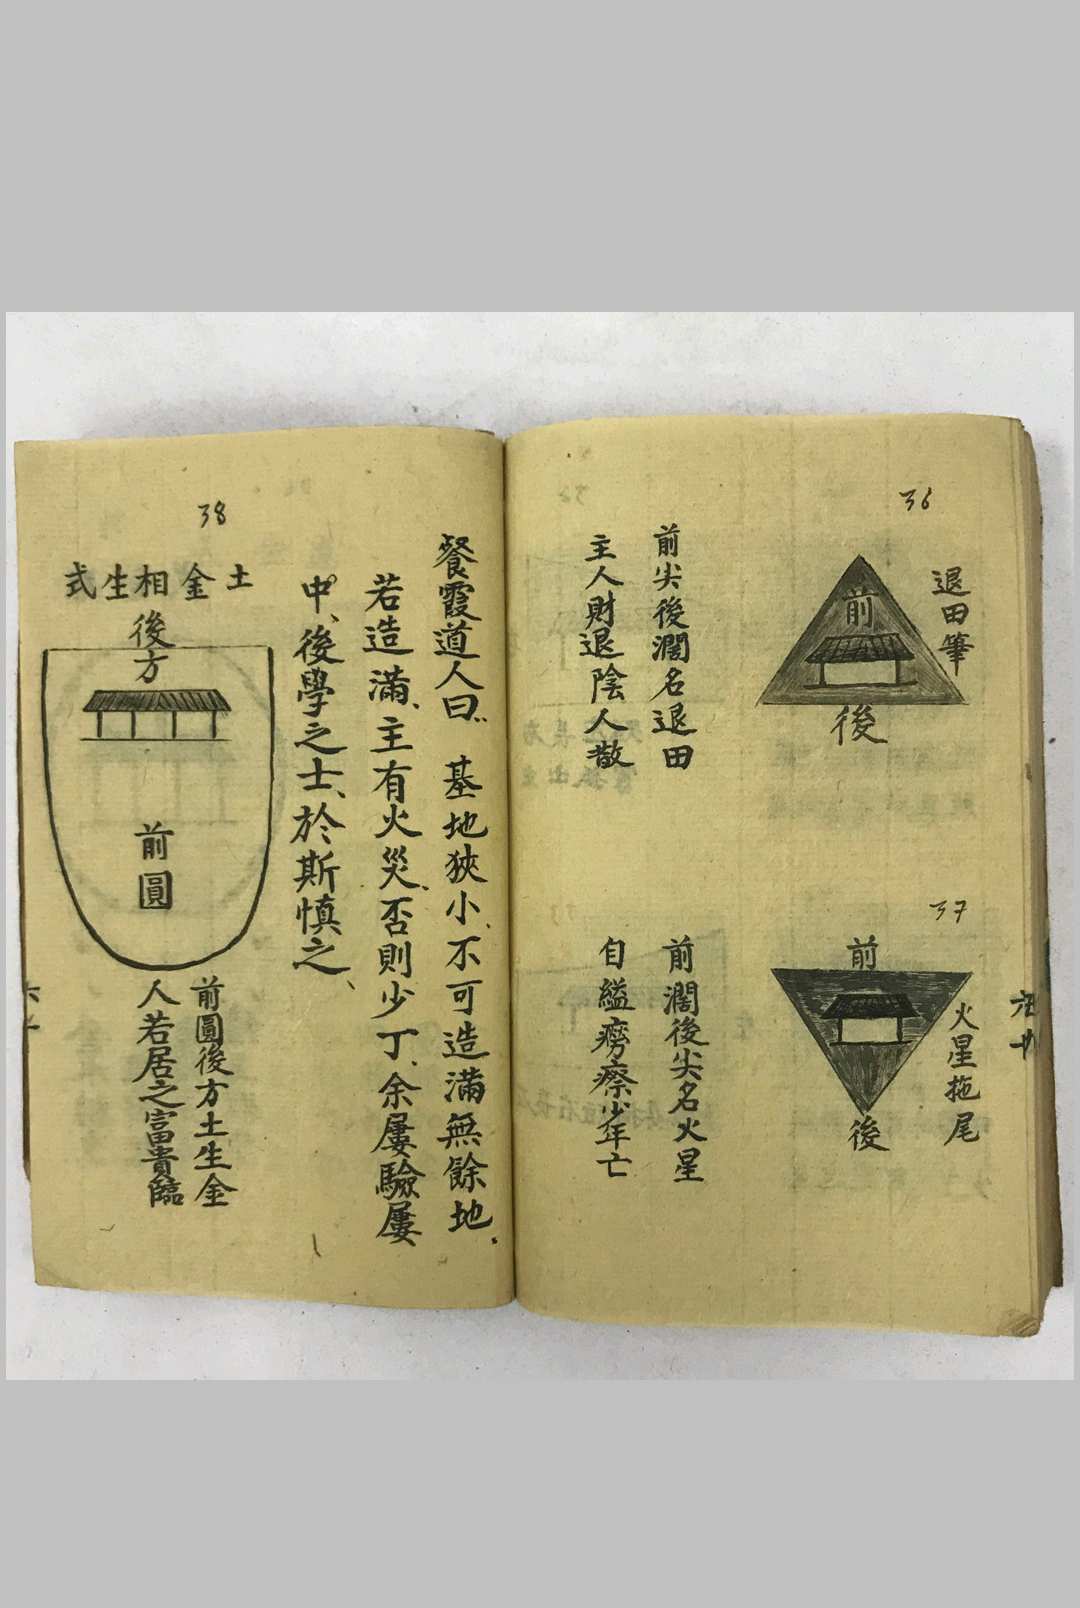 36
退田筆
前
後
前尖後濶名退田
主人財退陰人散
37
火星拖尾
前
後
前濶後尖名火星
自縊癆瘵少年亡
餐霞道人曰 基地狹小、不可造滿無餘地。
若造滿、主有火災、否則少丁、余屢驗屢
中、後學之士、於斯慎之、
38
土金相生式
後方
前圓
前圓後方土生金
人若居之富貴臨